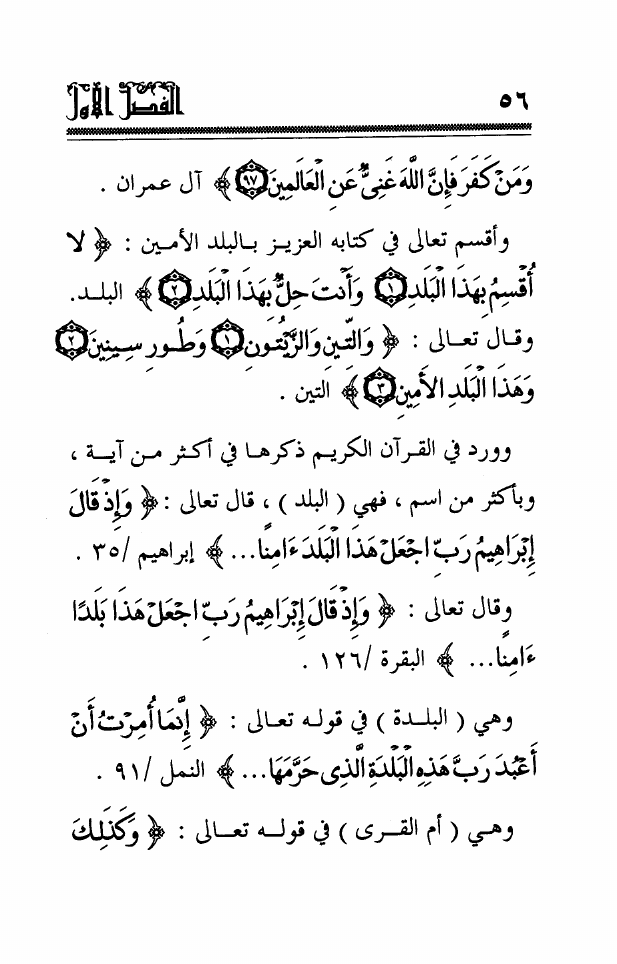 ٥٦ الفصل الأول
وَمَنْ كَفَرَ فَإِنَّ اللَّهَ غَنِيٌّ عَنِ الْعَالَمِينَ ﴿٩٧﴾ ﴾ آل عمران .
وأقسم تعالى في كتابه العزيز بالبلد الأمين : ﴿ لا
أُقْسِمُ بِهَذَا الْبَلَدِ ﴿١﴾ وَأَنْتَ حِلٌّ بِهَذَا الْبَلَدِ ﴿٢﴾ ﴾ البلد.
وقال تعالى : ﴿ وَالتِّينِ وَالزَّيْتُونِ ﴿١﴾ وَطُورِ سِينِينَ ﴿٢﴾
وَهَذَا الْبَلَدِ الأَمِينِ ﴿٣﴾ ﴾ التين .
وورد في القرآن الكريم ذكرها في أكثر من آية ،
وبأكثر من اسم ، فهي ( البلد ) ، قال تعالى : ﴿ وَإِذْ قَالَ
إِبْرَاهِيمُ رَبِّ اجْعَلْ هَذَا الْبَلَدَ ءَامِنًا... ﴾ إبراهيم /٣٥ .
وقال تعالى : ﴿ وَإِذْ قَالَ إِبْرَاهِيمُ رَبِّ اجْعَلْ هَذَا بَلَدًا
ءَامِنًا... ﴾ البقرة /١٢٦ .
وهي ( البلدة ) في قوله تعالى : ﴿ إِنَّمَا أُمِرْتُ أَنْ
أَعْبُدَ رَبَّ هَذِهِ الْبَلْدَةِ الَّذِي حَرَّمَهَا... ﴾ النمل /٩١ .
وهي ( أم القرى ) في قوله تعالى : ﴿ وَكَذَلِكَ